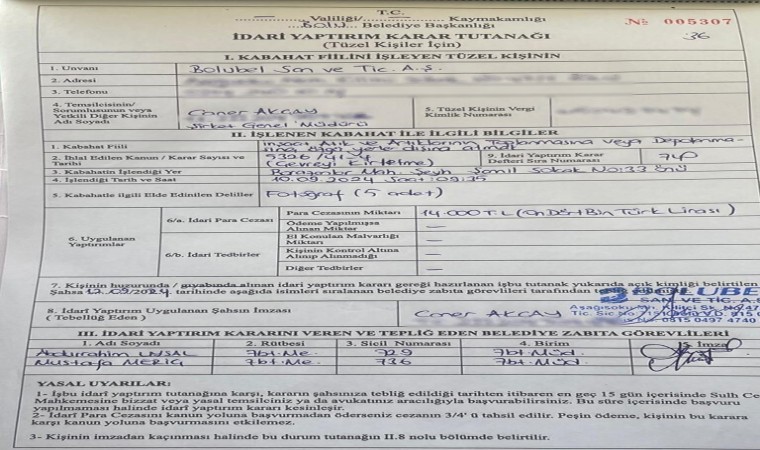 T.C.
Valiliği/ Kaymakamlığı
BOLU Belediye Başkanlığı
№ 005307
İDARİ YAPTIRIM KARAR TUTANAĞI
36
(Tüzel Kişiler İçin)
I. KABAHAT FİİLİNİ İŞLEYEN TÜZEL KİŞİNİN
1. Unvanı Bolubel San ve Tic. A.Ş.
2. Adresi
3. Telefonu
4. Temsilcisinin/ Sorumlusunun veya Yetkili Diğer Kişinin Adı Soyadı Caner AKÇAY Şirket Genel Müdürü
5. Tüzel Kişinin Vergi Kimlik Numarası
II. İŞLENEN KABAHAT İLE İLGİLİ BİLGİLER
1. Kabahat Fiili İnşaat Atık ve Artıklarının Toplanmasına veya Depolanmasına özgü yerler dışına atmak
2. İhlal Edilen Kanun / Karar Sayısı ve Tarihi 5326/41-4 (Çevreyi Kirletme)
9. İdari Yaptırım Karar Defteri Sıra Numarası 74
3. Kabahatin İşlendiği Yer Karaçayır Mah. Şeyh Şamil Sokak No:33 önü
4. İşlendiği Tarih ve Saat 10.09.2024 Saat: 09:35
5. Kabahatle ilgili Elde Edinilen Deliller Fotoğraf (5 adet)
6. Uygulanan Yaptırımlar
6/a. İdari Para Cezası
Para Cezasının Miktarı 14.000 T.L (On Dört Bin Türk Lirası)
Ödeme Yapılmışsa Alınan Miktar —
6/b. İdari Tedbirler
El Konulan Malvarlığı Miktarı —
Kişinin Kontrol Altına Alınıp Alınmadığı —
Diğer Tedbirler —
7. Kişinin huzurunda / gıyabında alınan idari yaptırım kararı gereği hazırlanan işbu tutanak yukarıda açık kimliği belirtilen
Şahsa 12.09/2024 tarihinde aşağıda isimleri sıralanan belediye zabıta görevlileri tarafından
SAN. VE TİC. A.Ş.
8. İdari Yaptırım Uygulanan Şahsın İmzası ( Tebellüğ Eden ) Caner AKÇAY
III. İDARİ YAPTIRIM KARARINI VEREN VE TEPLİĞ EDEN BELEDİYE ZABITA GÖREVLİLERİ
1. Adı Soyadı 2. Rütbesi 3. Sicil Numarası 4. Birim 5. İmza
Abdurrahim UNSAL Zbt. Me. 729 Zbt. Müd.
Mustafa MERİÇ Zbt. Me. 736 Zbt. Müd.
YASAL UYARILAR:
1- İşbu idari yaptırım tutanağına karşı, kararın şahsınıza tebliğ edildiği tarihten itibaren en geç 15 gün içerisinde Sulh Ce
Mahkemesine bizzat veya yasal temsilciniz ya da avukatınız aracılığıyla başvurabilirsiniz. Bu süre içerisinde başvuru
yapılmaması halinde idari yaptırım kararı kesinleşir.
2- İdari Para Cezasını kanun yoluna başvurmadan öderseniz cezanın 3/4' ü tahsil edilir. Peşin ödeme, kişinin bu karara
karşı kanun yoluna başvurmasını etkilemez.
3- Kişinin imzadan kaçınması halinde bu durum tutanağın II.8 nolu bölümde belirtilir.